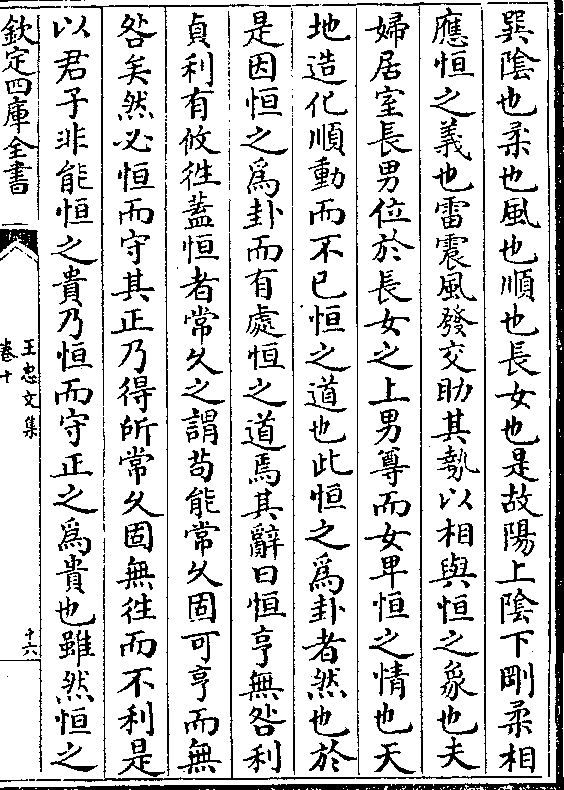 巽陰也柔也風也順也長女也是故陽上陰下剛柔相
應恒之義也雷震風發交助其勢以相與恒之象也夫
婦居室長男位於長女之上男尊而女卑恒之情也天
地造化順動而不已恒之道也此恒之為卦者然也於
是因恒之為卦而有處恒之道焉其辭曰恒亨無咎利
貞利有攸往蓋恒者常久之謂苟能常久固可亨而無
咎矣然必恒而守其正乃得所常久固無往而不利是
以君子非能恒之貴乃恒而守正之為貴也雖然恒之
欽定四庫全書
王忠文集
卷十
十六